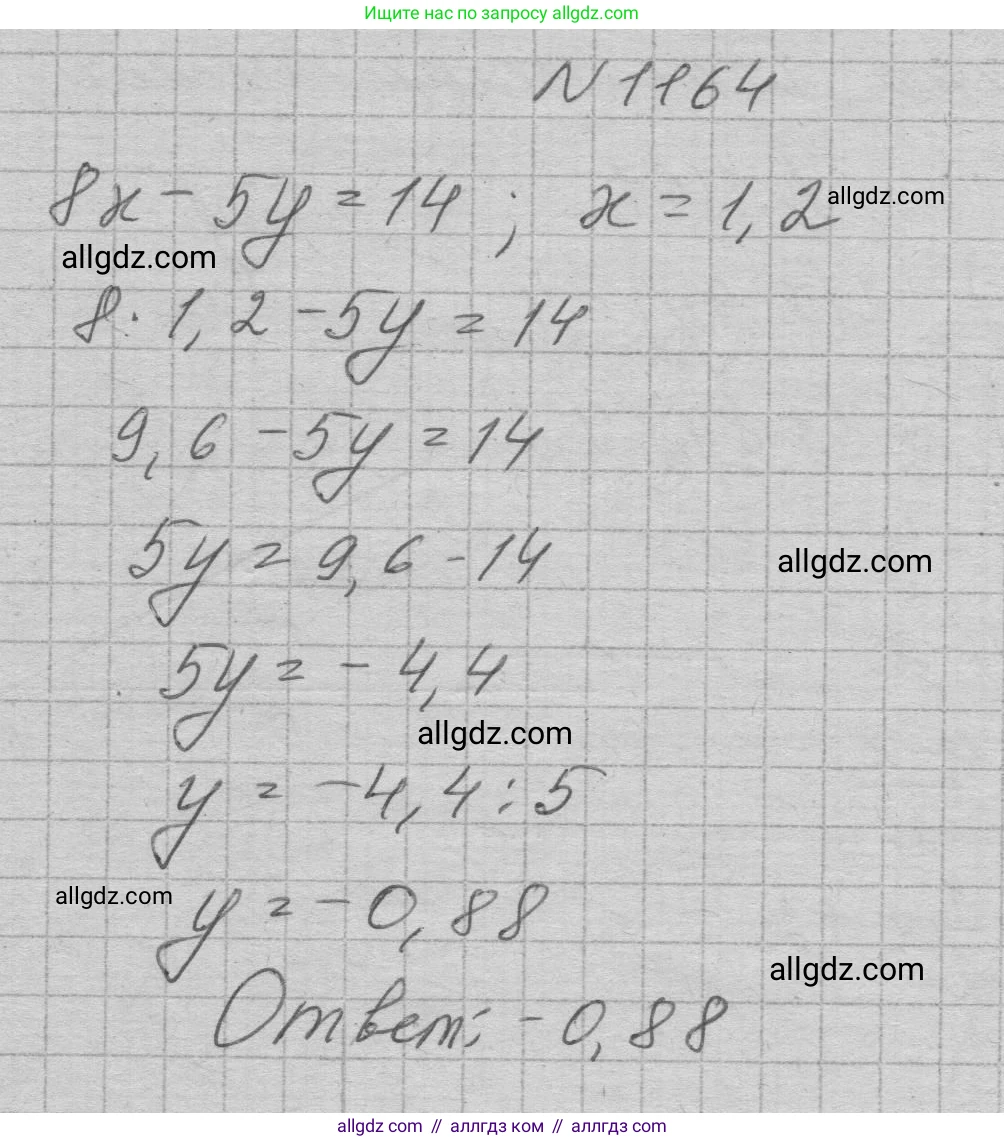 Ищите нас по запросу allgdz.com
N 1164
8x - 5y = 14 ; x = 1,2 allgdz.com
allgdz.com
8 · 1,2 - 5y = 14
9,6 - 5y = 14
5y = 9,6 - 14
allgdz.com
5y = - 4,4
allgdz.com
y = -4,4 : 5
allgdz.com
y = -0,88
allgdz.com
Ответ: -0,88
allgdz.com // аллгдз ком // аллгдз.com